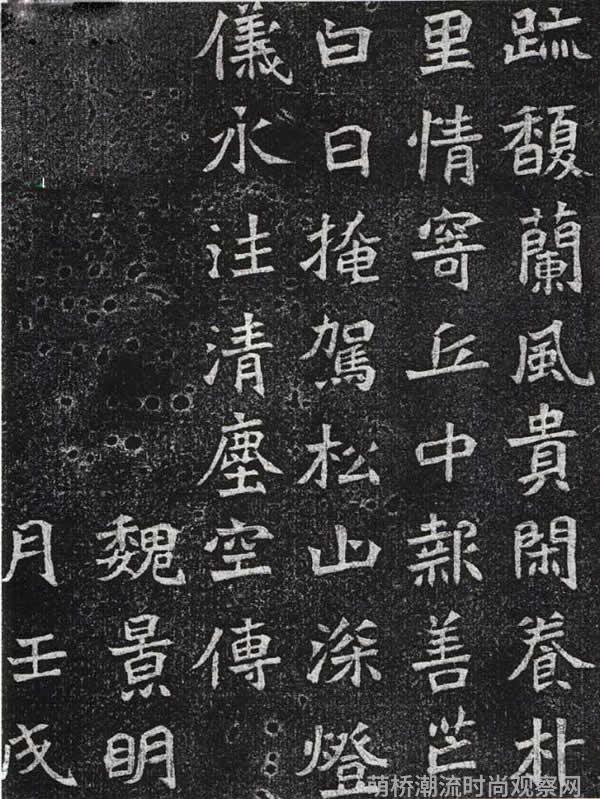 䟽馥蘭風貴閑養朴
里情寄丘中報善芒
白日掩駕松山深燈
儀永注清塵空傳
魏景明
月壬戌
萌桥潮流时尚观察网